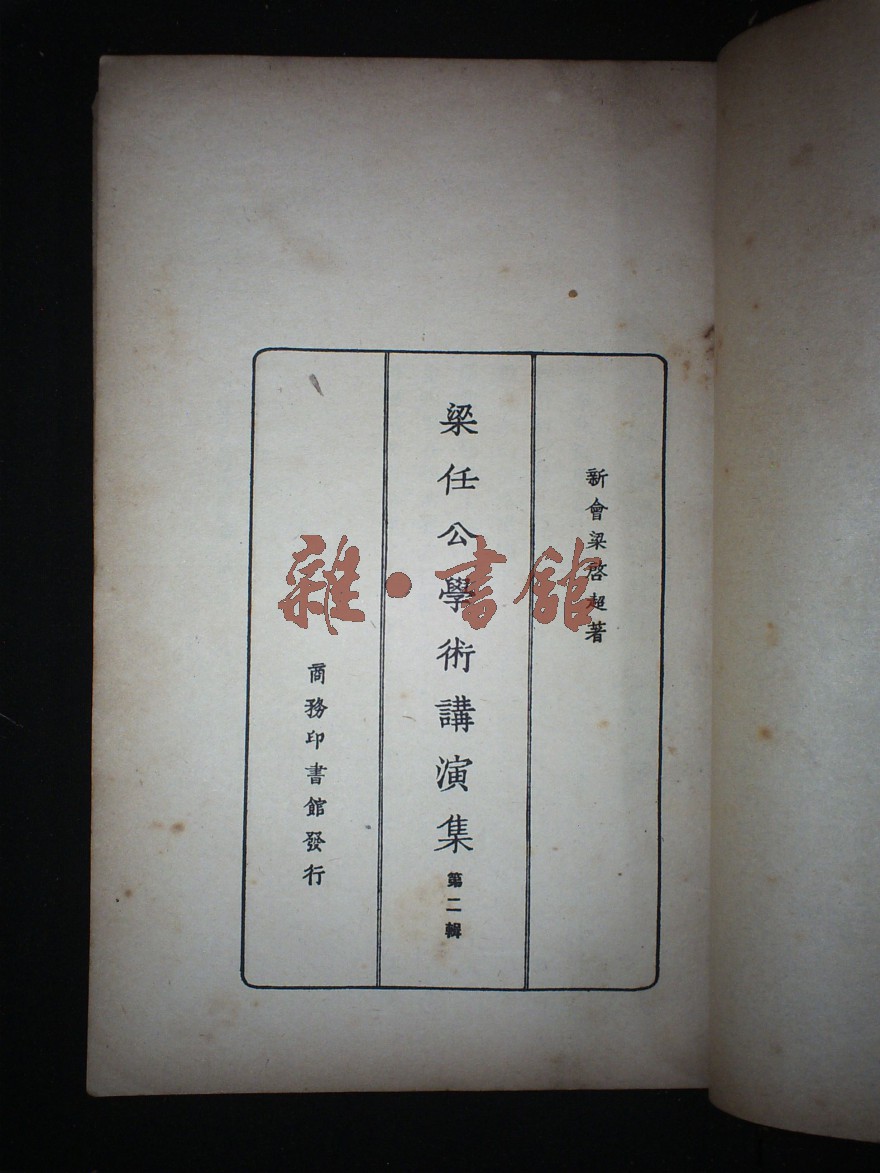 新會梁啓超著
梁任公學術講演集 第二輯
商務印書館發行
雜·書館